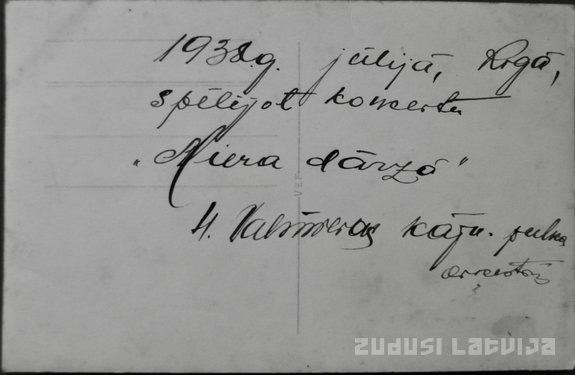 1938.g. jūlijā, Rīgā,
spēlējot koncertu
„Ziera dārzā"
4. Valmieras kājn. pulka
orķestris
VEF
ZUDUSI LATVIJA